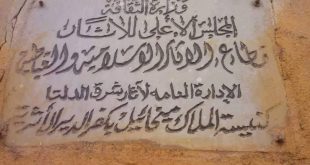 وزارة الثقافة
المجلس الأعلى للآثار
قطاع الآثار الاسلامية والقبطية
الإدارة العامة لآثار شرق الدلتا
كنيسة الملاك ميخائيل بكفر الدير الأثرية